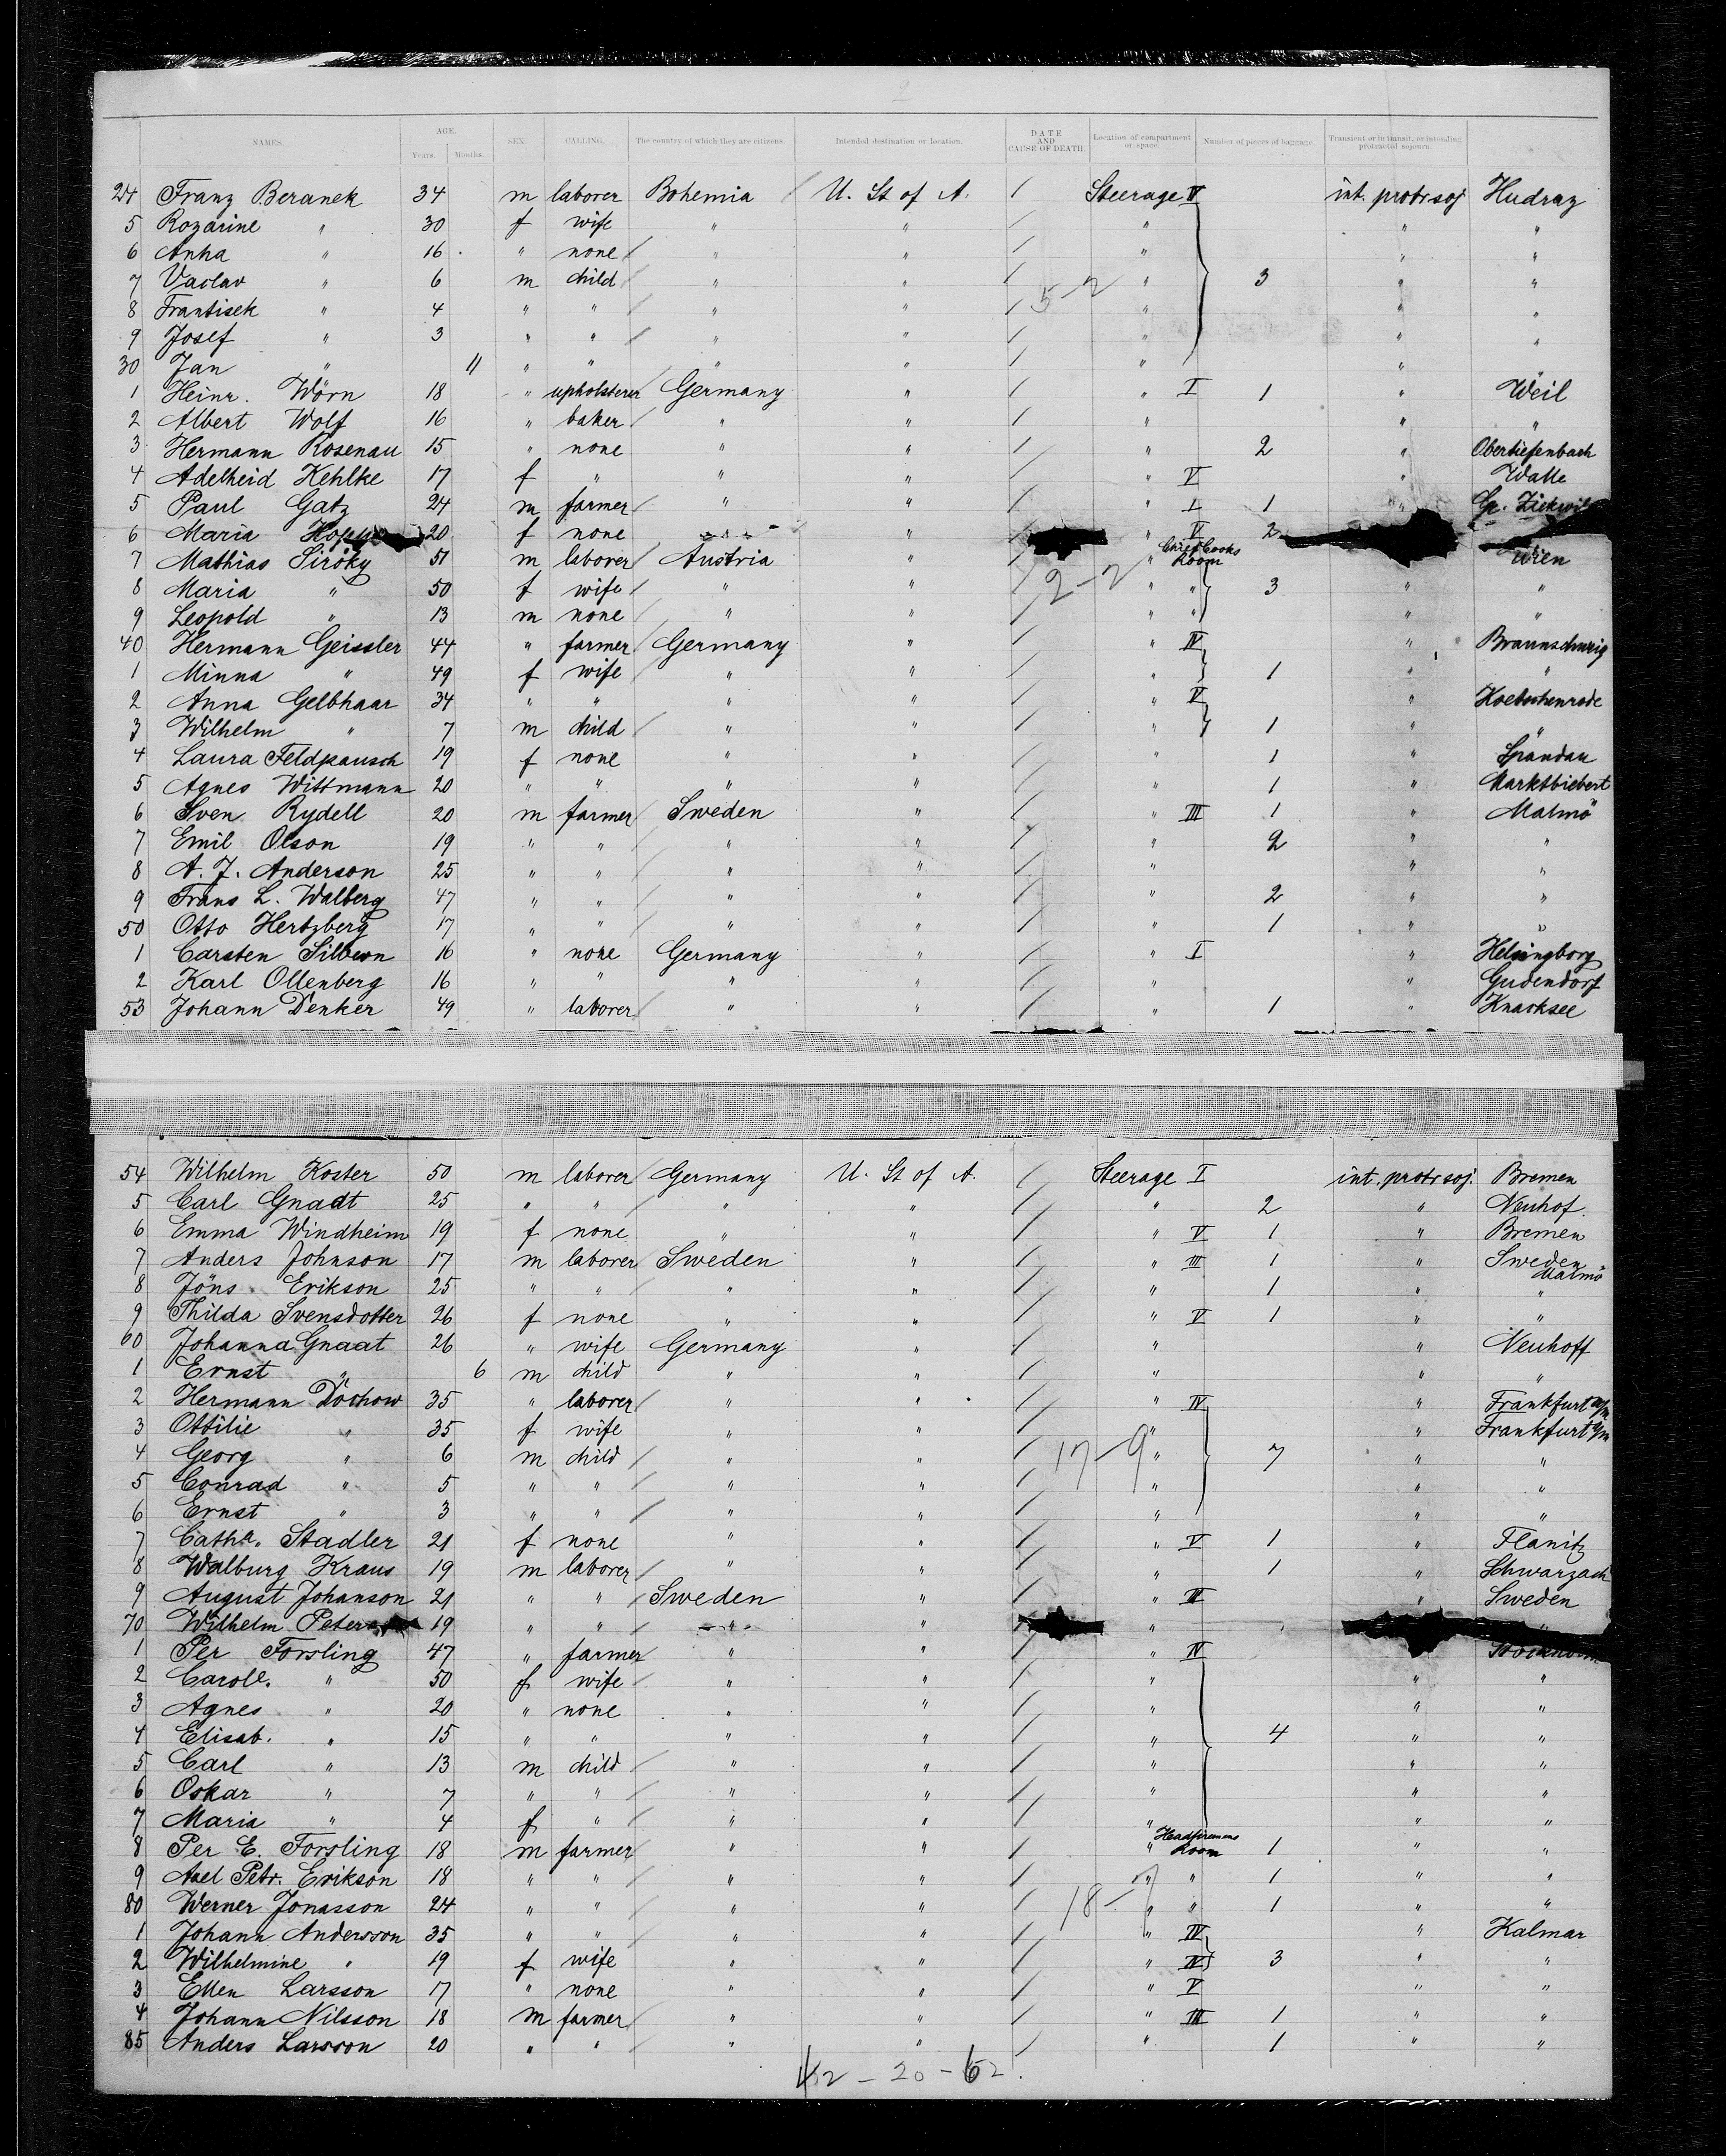 2
NAMES. AGE. SEX. CALLING. The country of which they are citizens. Intended destination or location. DATE AND CAUSE OF DEATH. Location of compartment or space. Number of pieces of baggage. Transient or in transit, or intending protracted sojourn.
Years. Months.
24 Franz Beranek 34 m laborer Bohemia / U. St of A. / Steerage V int. protr soj Hudraz
5 Rozarine " 30 f wife " " / " " "
6 Anna " 16 " none / " " / " " "
7 Vaclav " 6 m child / " " / 5-2 " 3 " "
8 Frantisek " 4 " " / " " / " " "
9 Josef " 3 " " / " " / " " "
30 Jan " 11 " " / " " / " " "
1 Heinr. Wörn 18 " upholsterer / Germany " / " I 1 " Weil
2 Albert Wolf 16 " baker / " " / " " "
3 Hermann Rosenau 15 " none " " / " 2 " Obertiefenbach
4 Adelheid Kehlke 17 f " " " / " V " Walle
5 Paul Gatz 24 m farmer / " " / " I 1 " Gr.
6 Maria 20 f none " " " V 2
7 Mathias Siroky 51 m laborer / Austria " / " Chief Cooks Room Wien
8 Maria " 50 f wife / " " / 2-2 " " 3 " "
9 Leopold " 13 m none / " " / " " " "
40 Hermann Geissler 44 " farmer / Germany " / " IV " Braunschweig
1 Minna " 49 f wife / " " / " 1 " "
2 Anna Gelbhaar 34 " " / " " / " V " Koetschenrode
3 Wilhelm " 7 m child / " " / " 1 " "
4 Laura Feldpausch 19 f none " " / " 1 " Spandau
5 Agnes Wittmann 20 " " " " / " 1 " Marktbiebert
6 Sven Rydell 20 m farmer / Sweden " / " III 1 " Malmö
7 Emil Olson 19 " " / " " / " 2 " "
8 A. J. Anderson 25 " " / " " / " " "
9 Frans L. Walberg 47 " " / " " / " 2 " "
50 Otto Hertzberg 17 " " / " " / " 1 " "
1 Carsten 16 " none Germany " / " I " Helsingborg
2 Karl Ollenberg 16 " " " " / " " Gudendorf
53 Johann Denker 49 " laborer / " " / " 1 " Knacksee
54 Wilhelm Koster 50 m laborer / Germany U. St of A. / Steerage I int. protr soj. Bremen
5 Carl Gnadt 25 " " / " " / " 2 " Neuhof.
6 Emma Windheim 19 f none " " / " V 1 " Bremen
7 Anders Johnson 17 m laborer / Sweden " / " III 1 " Sweden
8 Jöns Erikson 25 " " / " " / " 1 " Malmö "
9 Thilda Svensdotter 26 f none " " / " V 1 " "
60 Johanna Gnaat 26 " wife Germany " / " " Neuhoff
1 Ernst " 6 m child " " / " " "
2 Hermann Dochow 35 " laborer / " " / " IV " Frankfurt a/m
3 Ottilie " 35 f wife " " / " " Frankfurt a/m
4 Georg " 6 m child / " " / 17-9 " 7 " "
5 Conrad " 5 " " / " " / " " "
6 Ernst " 3 " " / " " / " " "
7 Catha. Stadler 21 f none " " / " V 1 " Flanitz
8 Walburg Kraus 19 m laborer / " " / " 1 " Schwarzach
9 August Johanson 21 " " / Sweden " / " III " Sweden
70 Wilhelm 19 " " / " " "
1 Per Forsling 47 " farmer / " " / " IV
2 Caroll. " 50 f wife / " " / " " "
3 Agnes " 20 " none " " / " " "
4 Elisab. " 15 " " " " / " 4 " "
5 Carl " 13 m child / " " / " " "
6 Oskar " 7 " " / " " / " " "
7 Maria " 4 f " / " " / " " "
8 Per E. Forsling 18 m farmer / " " / " Headfiremens Room 1 " "
9 Axel Petr. Erikson 18 " " / " " / " " 1 " "
80 Werner Jonasson 24 " " / " " / 18-7 " " 1 " "
1 Johann Andersson 35 " " / " " / " IV " Kalmar
2 Wilhelmine " 19 f wife " " / " IV 3 " "
3 Ellen Larsson 17 " none " " / " V " "
4 Johann Nilsson 18 m farmer / " " / " III 1 " "
85 Anders Larsson 20 " " / " " / " 1 " "
42 - 20 - 62.